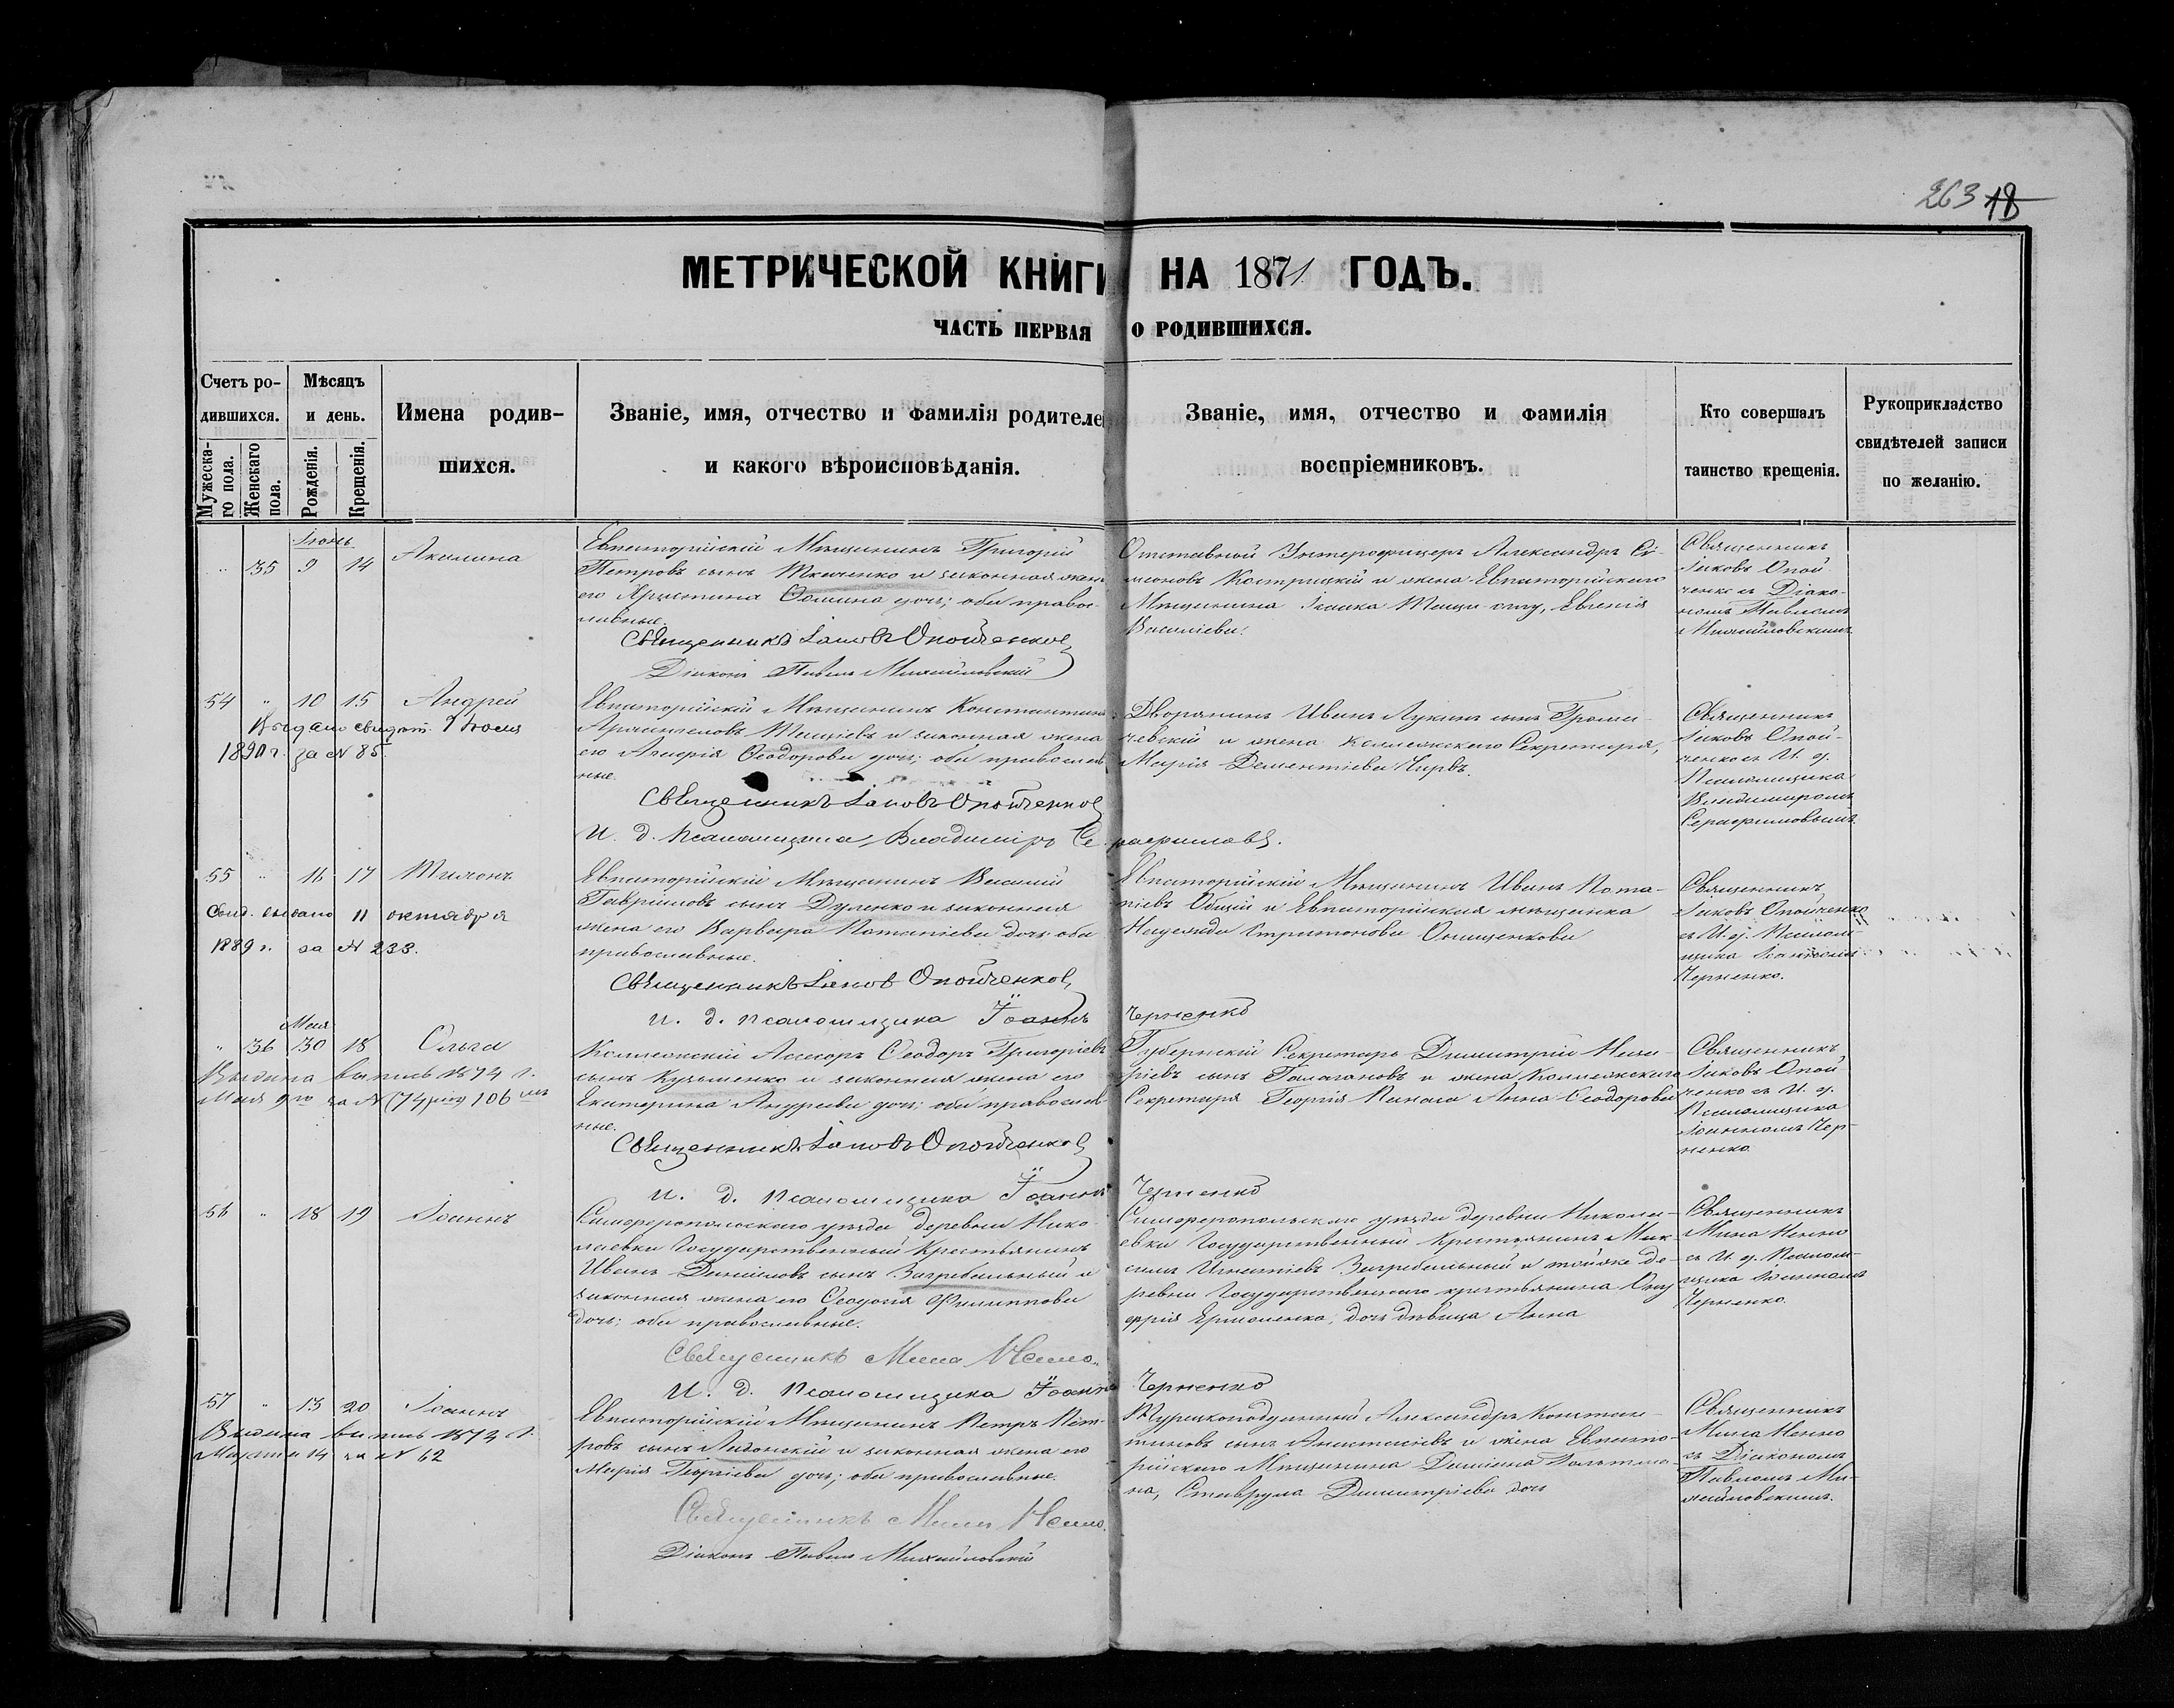 263 18
МЕТРИЧЕСКОЙ КНИГИ НА 1871 ГОДЪ.
ЧАСТЬ ПЕРВАЯ О РОДИВШИХСЯ.
Счетъ ро-
дившихся.
Мужеска-
го пола.
Женскаго
пола.
Мѣсяцъ
и день.
Рожденія.
Крещенія.
Имена родив-
шихся.
Званіе, имя, отчество и фамилія родителей
и какого вѣроисповѣданія.
Званіе, имя, отчество и фамилія
воспріемниковъ.
Кто совершалъ
таинство крещенія.
Рукоприкладство
свидѣтелей записи
по желанію.
Іюнь
" 35 9 14 Акилина
Евпаторійскій Мѣщанинъ Григорій
Петровъ сынъ Ткаченко и законная жена
его Христина Ѳомина дочь; оба правос-
лавные.
Священникъ Іаковъ Опойченковъ
Діаконъ Павелъ Михайловскій
Отставной Унтерофицеръ Александръ Си-
меоновъ Кострицкій и жена Евпаторійскаго
Мѣщанина Евгенія
Василіева.
Священникъ
Іаковъ Опой-
ченко съ Діако-
номъ Павломъ
Михайловскимъ
54 " 10 15 Андрей
Выдано свидѣт. 7 Іюля
1890 г. за № 85.
Евпаторійскій Мѣщанинъ Константинъ
и законная жена
его Ѳеодорова дочь; оба православ-
ные.
Священникъ Іаковъ Опойченковъ
И. д. Псаломщика Владиміръ Серафимовъ.
Дворянинъ Иванъ Лукинъ сынъ Грома-
чевскій и жена Коллежскаго Секретаря,
Марія Дементіева Чирвъ.
Священникъ
Іаковъ Опой-
ченко съ И. д.
Псаломщика
Владиміромъ
Серафимовымъ
55 " 16 17 Тихонъ
Свид. выдано 11 октября
1889 г. за № 233.
Евпаторійскій Мѣщанинъ Василій
Гавриловъ сынъ Дуленко и законная
жена его Варвара Потапіева дочь оба
православные.
Священникъ Іаковъ Опойченковъ
и. д. псаломщика Іоаннъ Черненко
Евпаторійскій Мѣщанинъ Иванъ Пота-
піевъ Общій и Евпаторійская мѣщанка
Надежда Онищенкова
Священникъ
Іаковъ Опойченко
съ И. д. Псалом-
щика Іоанномъ
Черненко.
Мая
" 36 30 18 Ольга
Выдана выпись 1874 г.
Мая 9го за № 106
Коллежскій Ассесоръ Ѳеодоръ Григоріевъ
сынъ Кузьменко и законная жена его
Екатерина Андреева дочь; оба православ-
ные.
Священникъ Іаковъ Опойченковъ
и. д. псаломщика Іоаннъ Черненко
Губернскій Секретарь Димитрій Наза-
ріевъ сынъ Галагановъ и жена Коллежскаго
Секретаря Георгія Анна Ѳеодорова
Священникъ
Іаковъ Опой-
ченко съ И. д.
Псаломщика
Іоанномъ Чер-
ненко.
56 " 18 19 Іоаннъ
Симферопольскаго уѣзда деревни Нико-
лаевки Государственный Крестьянинъ
Иванъ Даниловъ сынъ Загребельный и
законная жена его Ѳеодосія Филиппова
дочь; оба православные.
Священникъ Мина Ненно.
И. д. псаломщика Іоаннъ Черненко
Симферопольскаго уѣзда деревни Никола-
евки Государственный Крестьянинъ Мак-
симъ Игнатіевъ Загребельный и тойже де-
ревни Государственнаго крестьянина Ону-
фрія Ермоленка, дочь дѣвица Анна
Священникъ
Мина Ненно
съ И. д. Псалом-
щика Іоанномъ
Черненко.
57 " 13 20 Іоаннъ
Выдана выпись 1874 г.
Марта 14 за № 62
Евпаторійскій Мѣщанинъ Петръ Пет-
ровъ сынъ и законная жена его
Марія Георгіева дочь; оба православные.
Священникъ Мина Ненно.
Діаконъ Павелъ Михайловскій
Турецкоподданный Александръ Констан-
тиновъ сынъ Анастасіевъ и жена Евпато-
рійскаго Мѣщанина
на, Ставрула Димитріева дочь
Священникъ
Мина Ненно
съ Діакономъ
Павломъ Ми-
хайловскимъ.